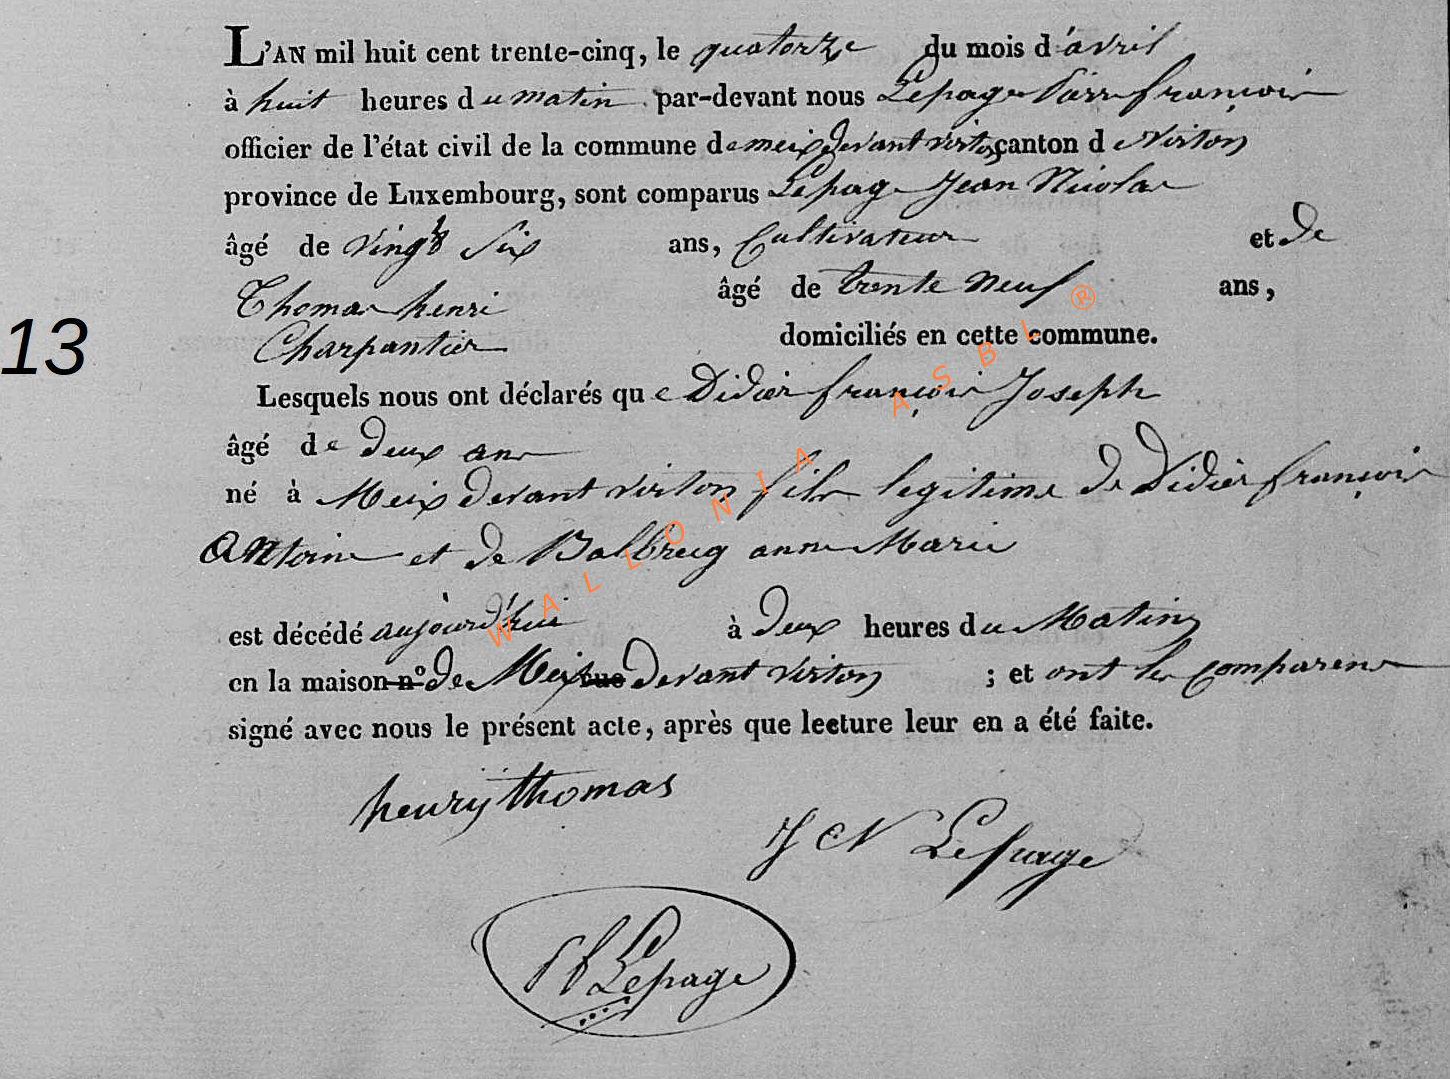 L'AN mil huit cent trente-cinq, le quatorze du mois d'avril
à huit heures du matin par-devant nous Lepage françois
officier de l'état civil de la commune de meix devant virton canton de Virton
province de Luxembourg, sont comparus Lepage Jean Nicolas
âgé de vingt Six ans, Cultivateur et de
Thomas henri âgé de trente Neuf ans,
Charpantier domiciliés en cette commune.
Lesquels nous ont déclarés que Didier françois Joseph
âgé de deux ans
né à Meix devant virton fils legitime de Didier françois
Antoine et de anne Marie
est décédé aujourd'hui à deux heures du Matin
en la maison n° de Meix rue devant virton ; et ont les comparens
signé avec nous le présent acte, après que lecture leur en a été faite.
henry thomas
J N Lepage
Pf Lepage
13
WALLONIA ASBL ®